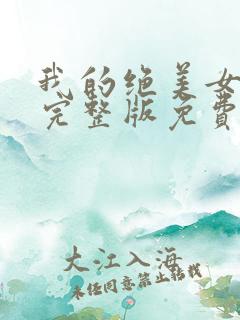 我的绝美女
完整版免费
大江入海
未经同意禁止转载